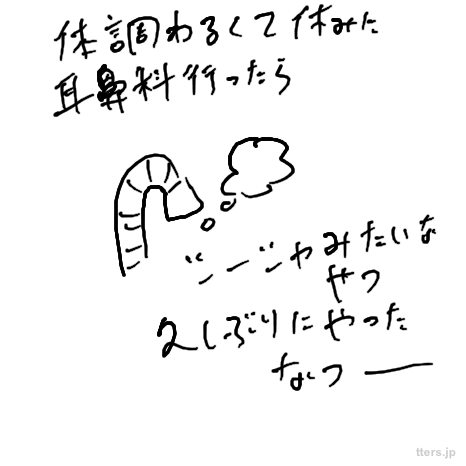 体調わるくて休みた
耳鼻科行ったら
ジージャみたいな
やつ
久しぶりにやった
なつー
tters.jp